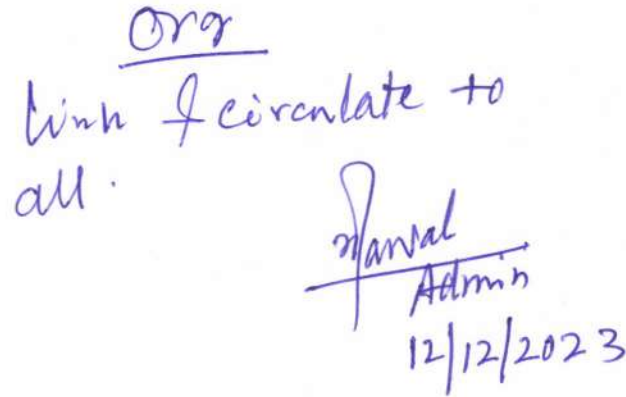 Org
Link & circulate to
all.
Admin
12/12/2023